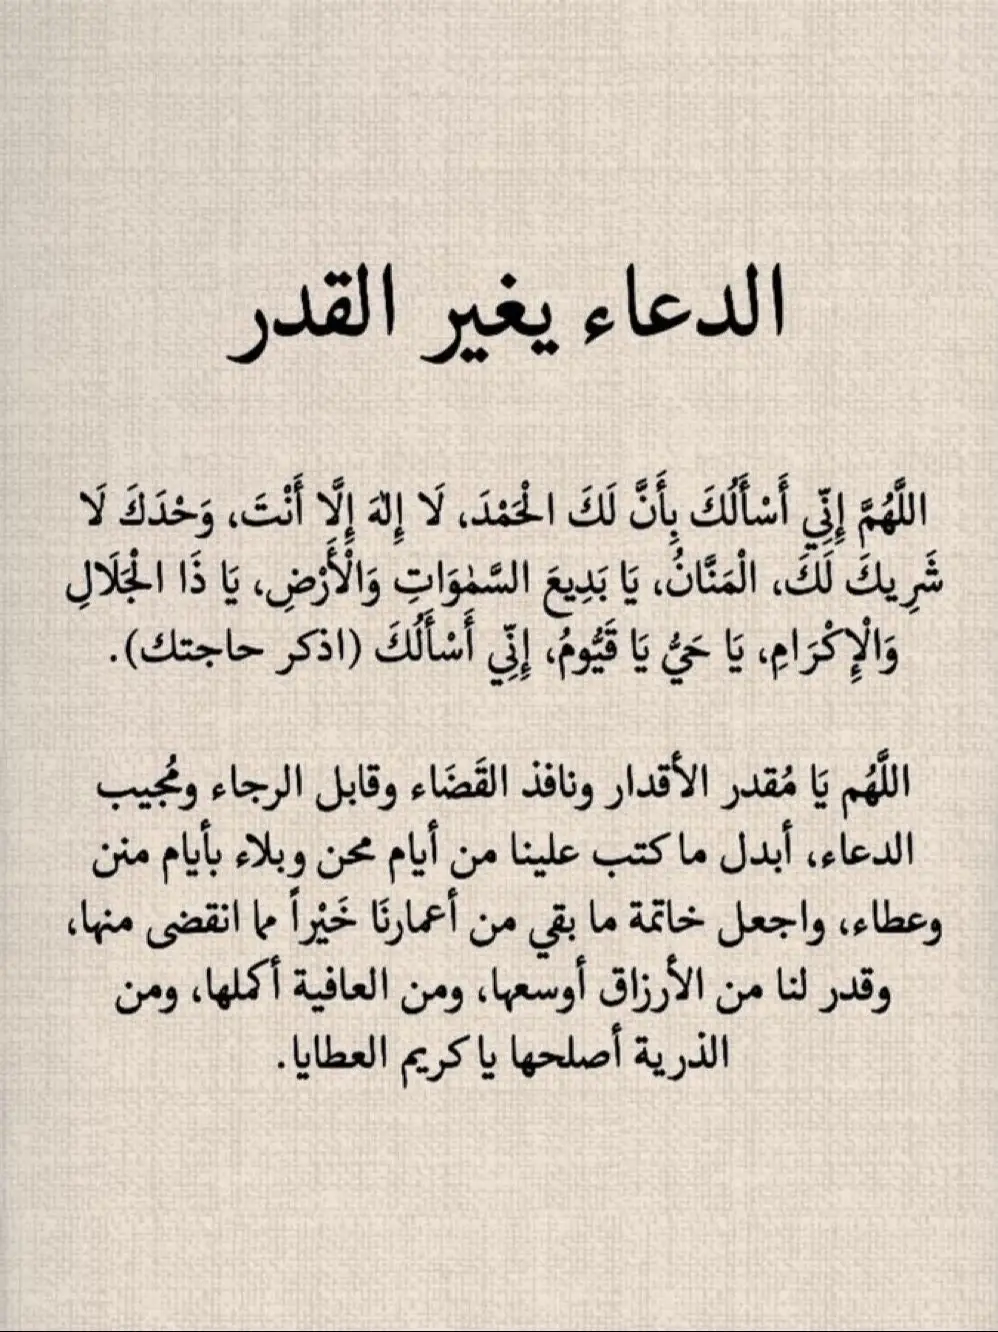 الدعاء يغير القدر
اللَّهُمَّ إِنِّي أَسْأَلُكَ بِأَنَّ لَكَ الْحَمْدَ، لَا إِلٰهَ إِلَّا أَنْتَ، وَحْدَكَ لَا
شَرِيكَ لَكَ، الْمَنَّانُ، يَا بَدِيعَ السَّمٰوَاتِ وَالْأَرْضِ، يَا ذَا الْجَلَالِ
وَالْإِكْرَامِ، يَا حَيُّ يَا قَيُّومُ، إِنِّي أَسْأَلُكَ (اذكر حاجتك).
اللَّهُم يَا مُقدر الأقدار ونافذ القَضَاء وقابل الرجاء ومُجيب
الدعاء، أبدل ما كتب علينا من أيام محن وبلاء بأيام منن
وعطاء، واجعل خاتمة ما بقي من أعمارنَا خَيْراً مما انقضى منها،
وقدر لنا من الأرزاق أوسعها، ومن العافية أكملها، ومن
الذرية أصلحها يا كريم العطايا.